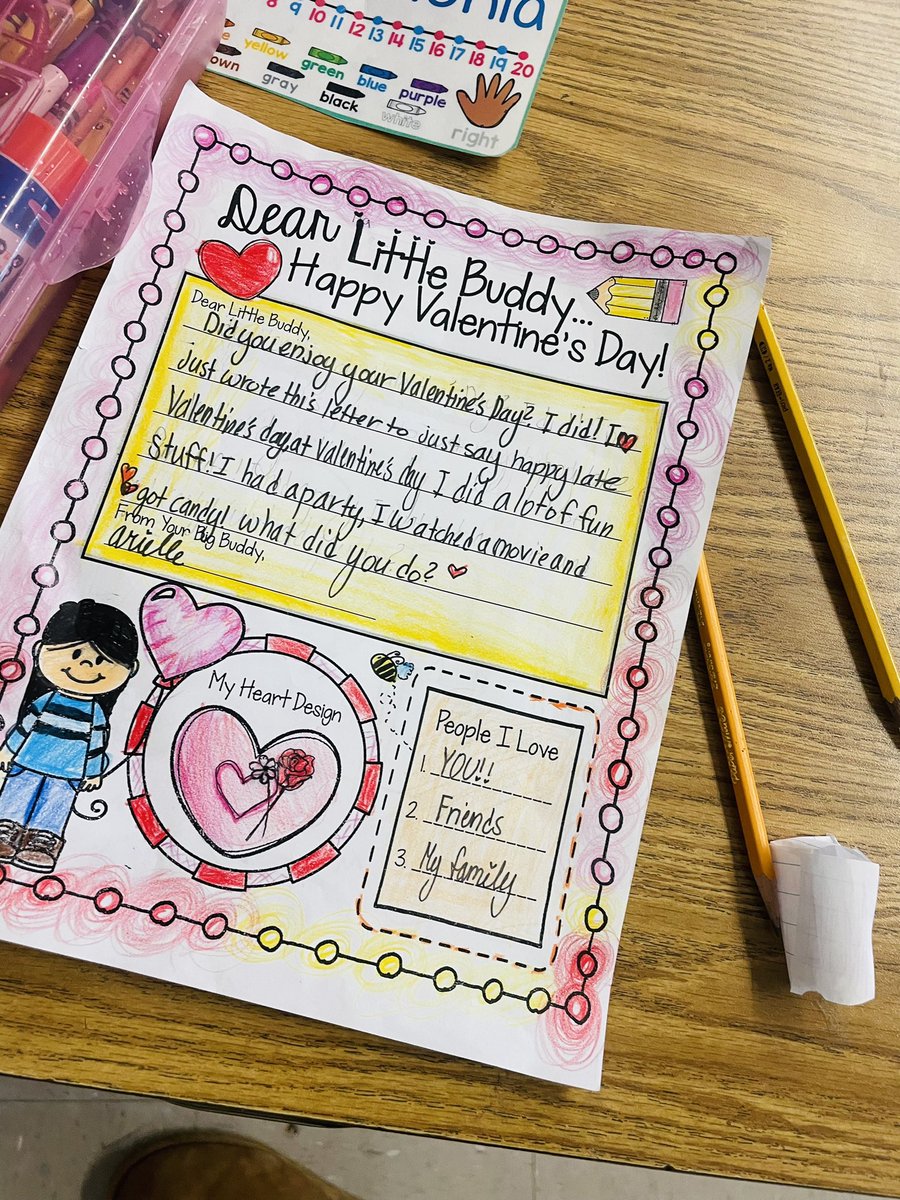 8 9 10 11 12 13 14 15 16 17 18 19 20
yellow
green
blue
purple
gray
black
white
right
Dear Little Buddy...
Happy Valentine's Day!
Dear Little Buddy,
Did you enjoy your Valentine's Day? I did! I
just wrote this letter to just say happy late
Valentine's day, at Valentine's day I did a lot of fun
stuff! I had a party, I watched a movie and
got candy! what did you do?
From Your Big Buddy,
arielle
My Heart Design
People I Love
1. YOU!!
2. Friends
3. My family